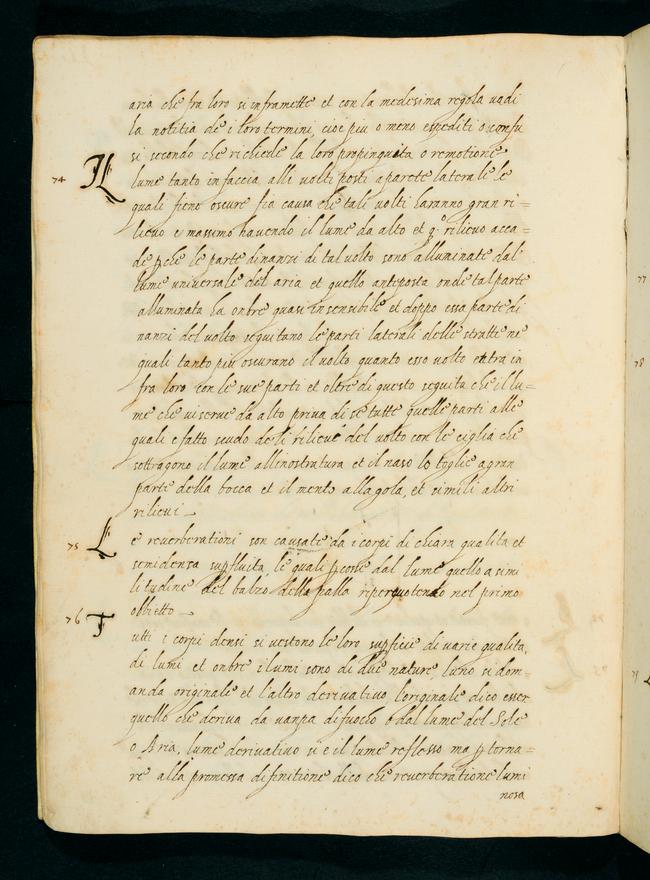 aria che fra loro si inframette et con la medesima regola vadi
la notitia de i loro termini, cioe piu o meno espediti o confu
si secondo che richiede la loro propinquita o remotione
74 Il lume tanto in faccia alli volti posti a parete laterali le
quali fieno oscure fia causa che tali volti haranno gran ri-
lievo e massimo havendo il lume da alto et q.o rilievo acca-
de p che le parte dinanzi di tal volto sono alluminate dal
lume universale del aria et quello anteposta onde tal parte
alluminata ha onbre quasi insensibile et doppo essa parte di
nanzi del volto seguitano le parti laterali delle stratte ne
quali tanto piu oscurano il volto quanto esso volto entra in
fra loro con le sue parti et oltre di questo seguita che il lu=
me che vi serve da alto priva di se tutte quelle parti alle
quali e fatto scudo de li rilievi del volto con le ciglia che
sottragono il lume all'inostratura et il naso lo toglie a gran
parte della bocca et il mento alla gola, et simili altri
rilievi
75 Le reverberationi son causate da i corpi di chiara qualita et
semidensa supfluita le quali pcosse dal lume quello a simi
litudine del balzo della palla ripercuotendo nel primo
obbietto
76 Tutti i corpi densi si vestono le loro supficie di varie qualita,
di lumi et onbre i lumi sono di due nature l'uno si dom-
anda originale et l'altro derivativo, l'originale dico esser
quello che deriva da vanpa di fuoco o dal lume del Sole
o Aria, lume derivativo si e il lume reflesso ma p torna=
re alla promessa difinitione dico che reverberatione lumi
nosa
77
78
79